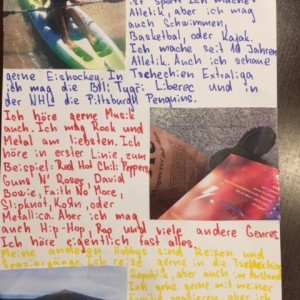 ist Sport. Ich mache
Atletik, aber ich mag
auch Schwimmen,
Basketbal, oder Kajak.
Ich mache seit 10 Jahren
Atletik. Auch ich schaue
gerne Eishockey. In Tschechien Extraliga
ich mag die Bílí Tygři Liberec und in
der NHL die Pittsburgh Penguins.
Ich höre gerne Musik
auch. Ich mag Rock und
Metal am liebsten. Ich
höre in erster Linie, zum
Beispiel: Red Hot Chili Peppers,
Guns N' Roses, David
Bowie, Faith No More,
Slipknot, Korn, oder
Metallica. Aber ich mag
auch Hip-Hop, Rap und viele andere Genres.
Ich höre eigentlich fast alles.
Meine anderen Hobbys sind Reisen und
Spaziergänge. Ich reise gerne in die Tschechische
Republik, aber auch im Ausland.
Ich gehe gerne mit meiner